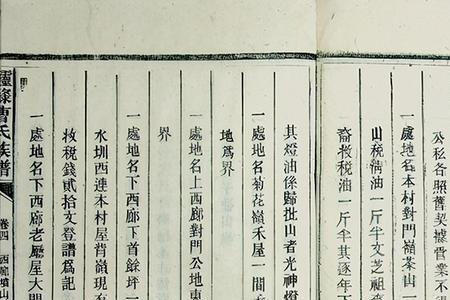 公私各照舊契據管業不得
一處地名本村對門嶺茶山一
山稅淸油一斤半文芝祖
裔按稅油一斤半其逐年
其燈油係歸批山者光神燈
一處地名菊花嶺禾屋一間
地爲界
一處地名上西廊對門公地東
界
一處地名下西廊下首餘坪一
水圳西連本村屋背嶺現有
收稅錢貳拾文登譜爲記
一處地名下西廊老廳屋大門
曹氏族譜
卷四
西廊墳山